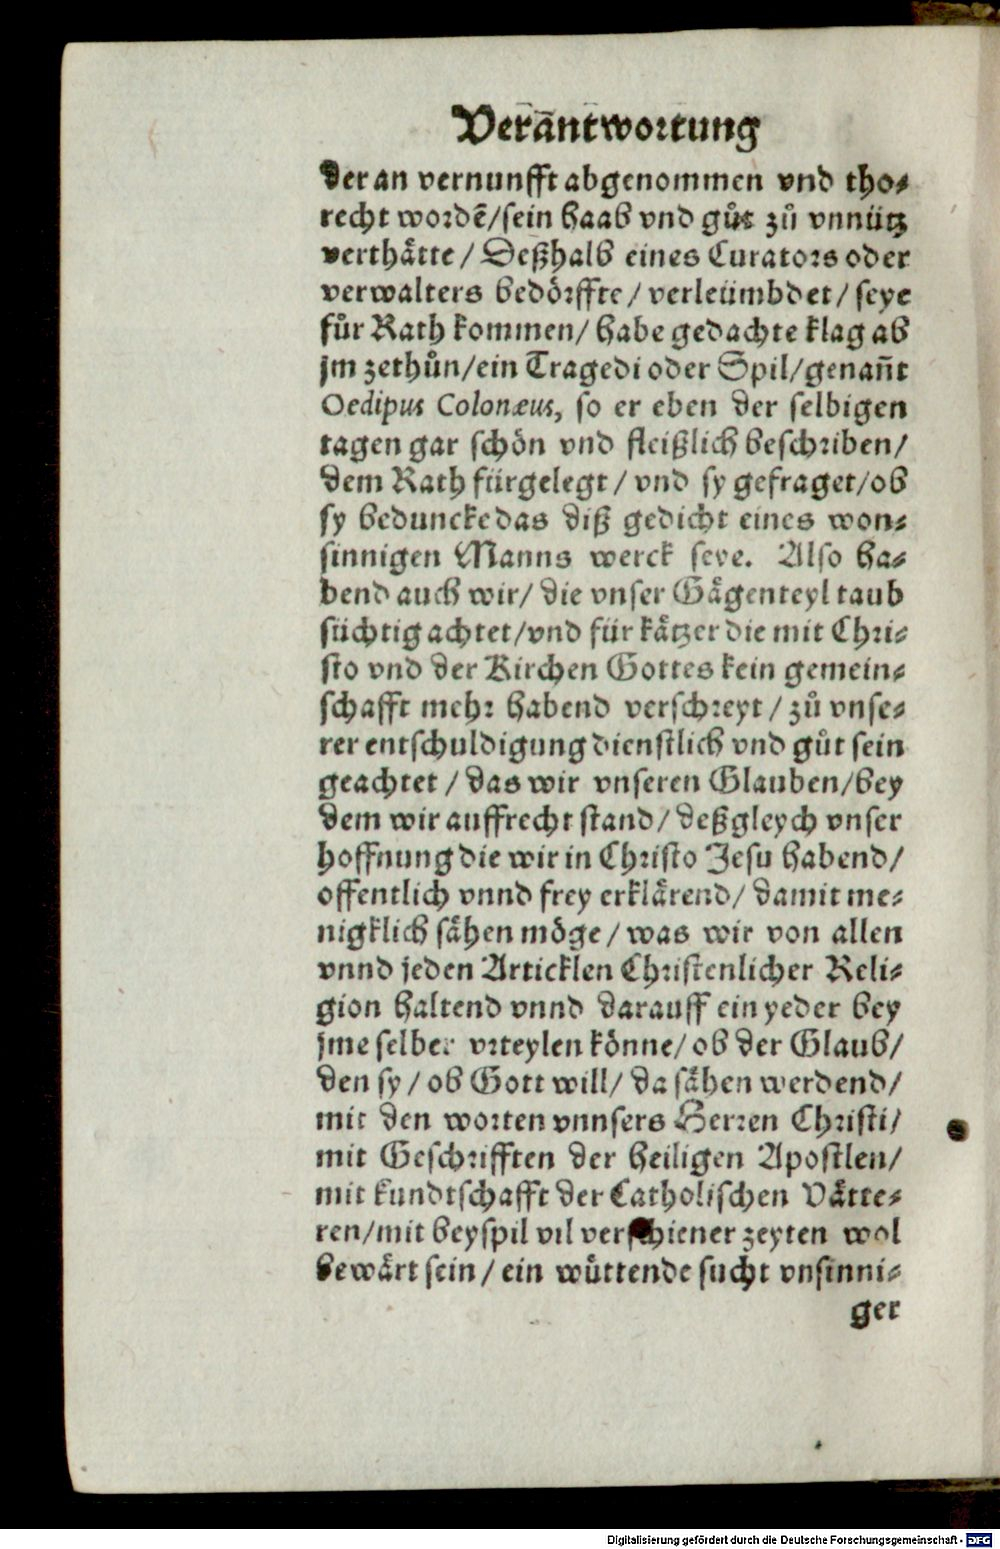 Verantwortung
der an vernunfft abgenommen vnd tho⸗
recht wordē/sein haab vnd gůt zů vnnütz
verthåtte / Deßhalb eines Curators oder
verwalters bedörffte / verleümbdet / seye
für Rath kommen / habe gedachte klag ab
jm zethůn/ein Tragedi oder Spil/genañt
Oedipus Colonæus, so er eben der selbigen
tagen gar schön vnd fleißlich beschriben/
dem Rath fürgelegt / vnd sy gefraget/ob
sy beduncke das diß gedicht eines won⸗
sinnigen Manns werck seye. Also ha⸗
bend auch wir/ die vnser Gågenteyl taub
süchtig achtet/vnd für kåtzer die mit Chri⸗
sto vnd der Kirchen Gottes kein gemein⸗
schafft mehr habend verschreyt / zů vnse⸗
rer entschuldigung dienstlich vnd gůt sein
geachtet / das wir vnseren Glauben/bey
dem wir auffrecht stand/ deßgleych vnser
hoffnung die wir in Christo Jesu habend/
offentlich vnnd frey erklårend/ damit me⸗
nigklich såhen möge / was wir von allen
vnnd jeden Articklen Christenlicher Reli⸗
gion haltend vnnd darauff ein yeder bey
jme selber vrteylen könne/ ob der Glaub/
den sy / ob Gott will/ da såhen werdend/
mit den worten vnnsers Herren Christi/
mit Geschrifften der heiligen Apostlen/
mit kundtschafft der Catholischen Våtte⸗
ren/mit beyspil vil verschiener zeyten wol
bewårt sein / ein wüttende sucht vnsinni⸗
ger
Digitalisierung gefördert durch die Deutsche Forschungsgemeinschaft - DFG